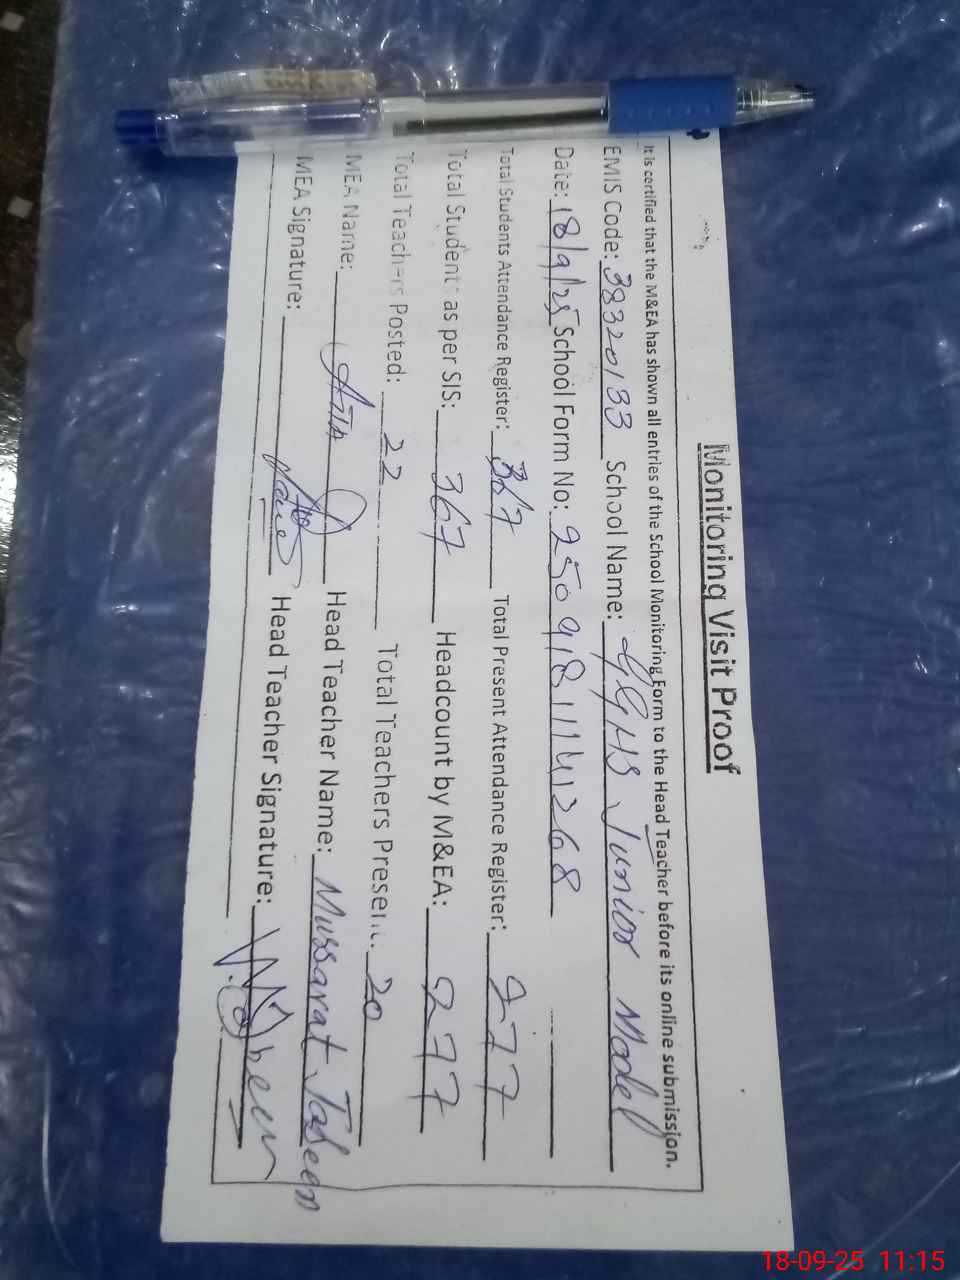 Monitoring Visit Proof
It is certified that the M&EA has shown all entries of the School Monitoring Form to the Head Teacher before its online submission.
EMIS Code: 38320133 School Name: GGHS Junior Model
Date: 18/9/25 School Form No: 25091811141268
Total Students Attendance Register: 367 Total Present Attendance Register: 277
Total Students as per SIS: 367 Headcount by M&EA: 277
Total Teachers Posted: 22 Total Teachers Present: 20
MEA Name: Head Teacher Name: Mussarat Jabeen
MEA Signature: Head Teacher Signature:
18-09-25 11:15